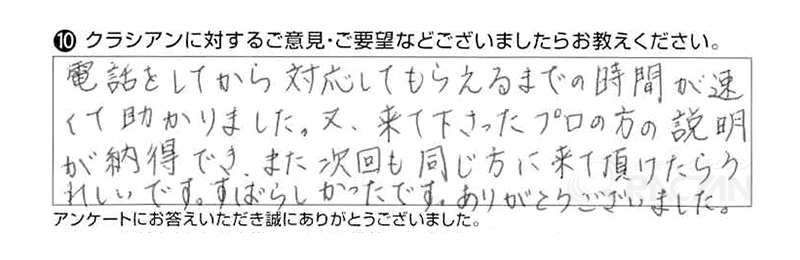 ⑩ クラシアンに対するご意見・ご要望などございましたらお教えください。
電話をしてから対応してもらえるまでの時間が速
くて助かりました。又、来て下さったプロの方の説明
が納得でき、また次回も同じ方に来て頂けたらう
れしいです。すばらしかったです。ありがとうございました。
アンケートにお答えいただき誠にありがとうございました。